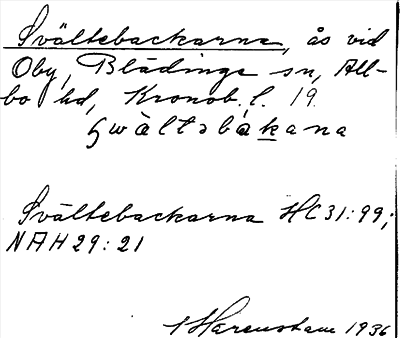 Svältebackarna, ås vid
Oby, Blädinge sn, All-
bo hd, Kronob. l. 19.
swàltəbákana
Svältebackarna HC31:99;
NAH29:21
Harenstam 1936